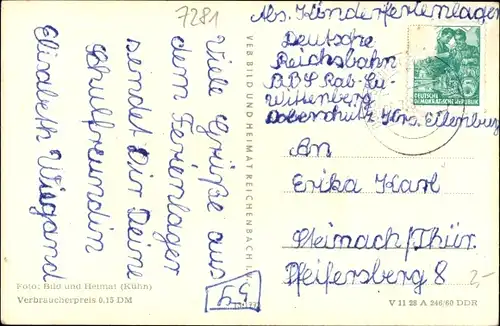 7281
Viele Grüße aus
dem Ferienlager
sendet Dir Deine
Schulfreundin
Elisabeth Wiegand
Foto: Bild und Heimat (Kühn)
Verbraucherpreis 0,15 DM
VEB BILD UND HEIMAT REICHENBACH I. V.
Abs. Kinderferienlager
Deutsche
Reichsbahn
BBS Rab-Lu-
Wittenberg
Doberschütz Krs. Eilenburg
DEUTSCHE
DEMOKRATISCHE REPUBLIK
An
Erika Karl
Steinach/Thür.
Pfeifersberg 8
2,-
V 11 28 A 246/60 DDR